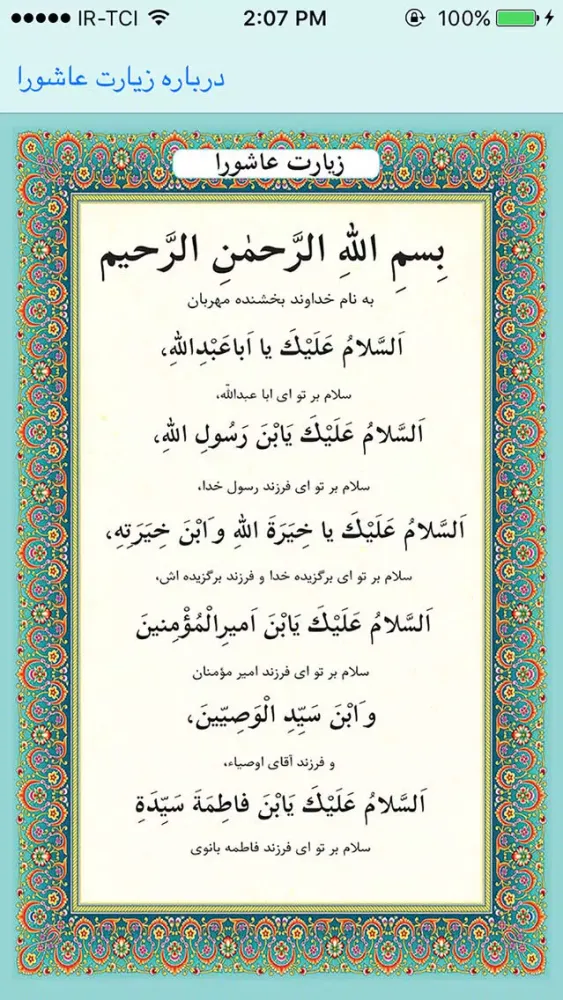 IR-TCI 2:07 PM 100%
درباره زیارت عاشورا
زیارت عاشورا
بِسمِ اللهِ الرَّحمٰنِ الرَّحیم
به نام خداوند بخشنده مهربان
اَلسَّلامُ عَلَیْکَ یا اَباعَبْدِاللهِ،
سلام بر تو ای ابا عبدالله،
اَلسَّلامُ عَلَیْکَ یَابْنَ رَسُولِ اللهِ،
سلام بر تو ای فرزند رسول خدا،
اَلسَّلامُ عَلَیْکَ یا خِیَرَةَ اللهِ وَابْنَ خِیَرَتِهِ،
سلام بر تو ای برگزیده خدا و فرزند برگزیده اش،
اَلسَّلامُ عَلَیْکَ یَابْنَ اَمیرِالْمُؤْمِنینَ
سلام بر تو ای فرزند امیر مؤمنان
وَابْنَ سَیِّدِ الْوَصِیّینَ،
و فرزند آقای اوصیاء،
اَلسَّلامُ عَلَیْکَ یَابْنَ فاطِمَةَ سَیِّدَةِ
سلام بر تو ای فرزند فاطمه بانوی